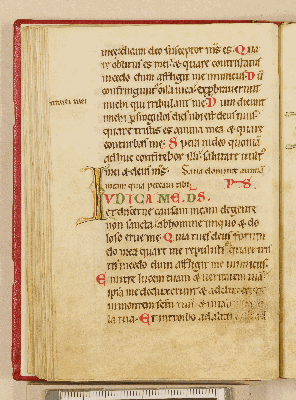 mee; dicam deo susceptor m̄s es. Qua
re oblitus es mei & quare contristatus
incedo dum affligit me inimicus. Dū
confringuntur ossa mea exprobraverunt
michi qui tribulant me. Dum dicunt
michi p singulos dies ubi est deus tuus
quare tristis es anima mea & quare
conturbas me. Spera in deo quoniā
adhuc confitebor illi salutare vult'
mei & deus m̄s. Sana domine animā
meam quia peccavi tibi. PS.
IUDICA ME. DS.
et discerne causam meam de gente
non sancta ab homine iniquo & do
loso erue me. Quia tu es deus fortitu
do mea quare me repulisti & quare tris
tis incedo dum affligit me inimicus.
Emitte lucem tuam & veritatem tuā
ipsa me deduxerunt & adduxerunt
in montem scm tuū & in tabernacu
la tua. Et introibo ad altare